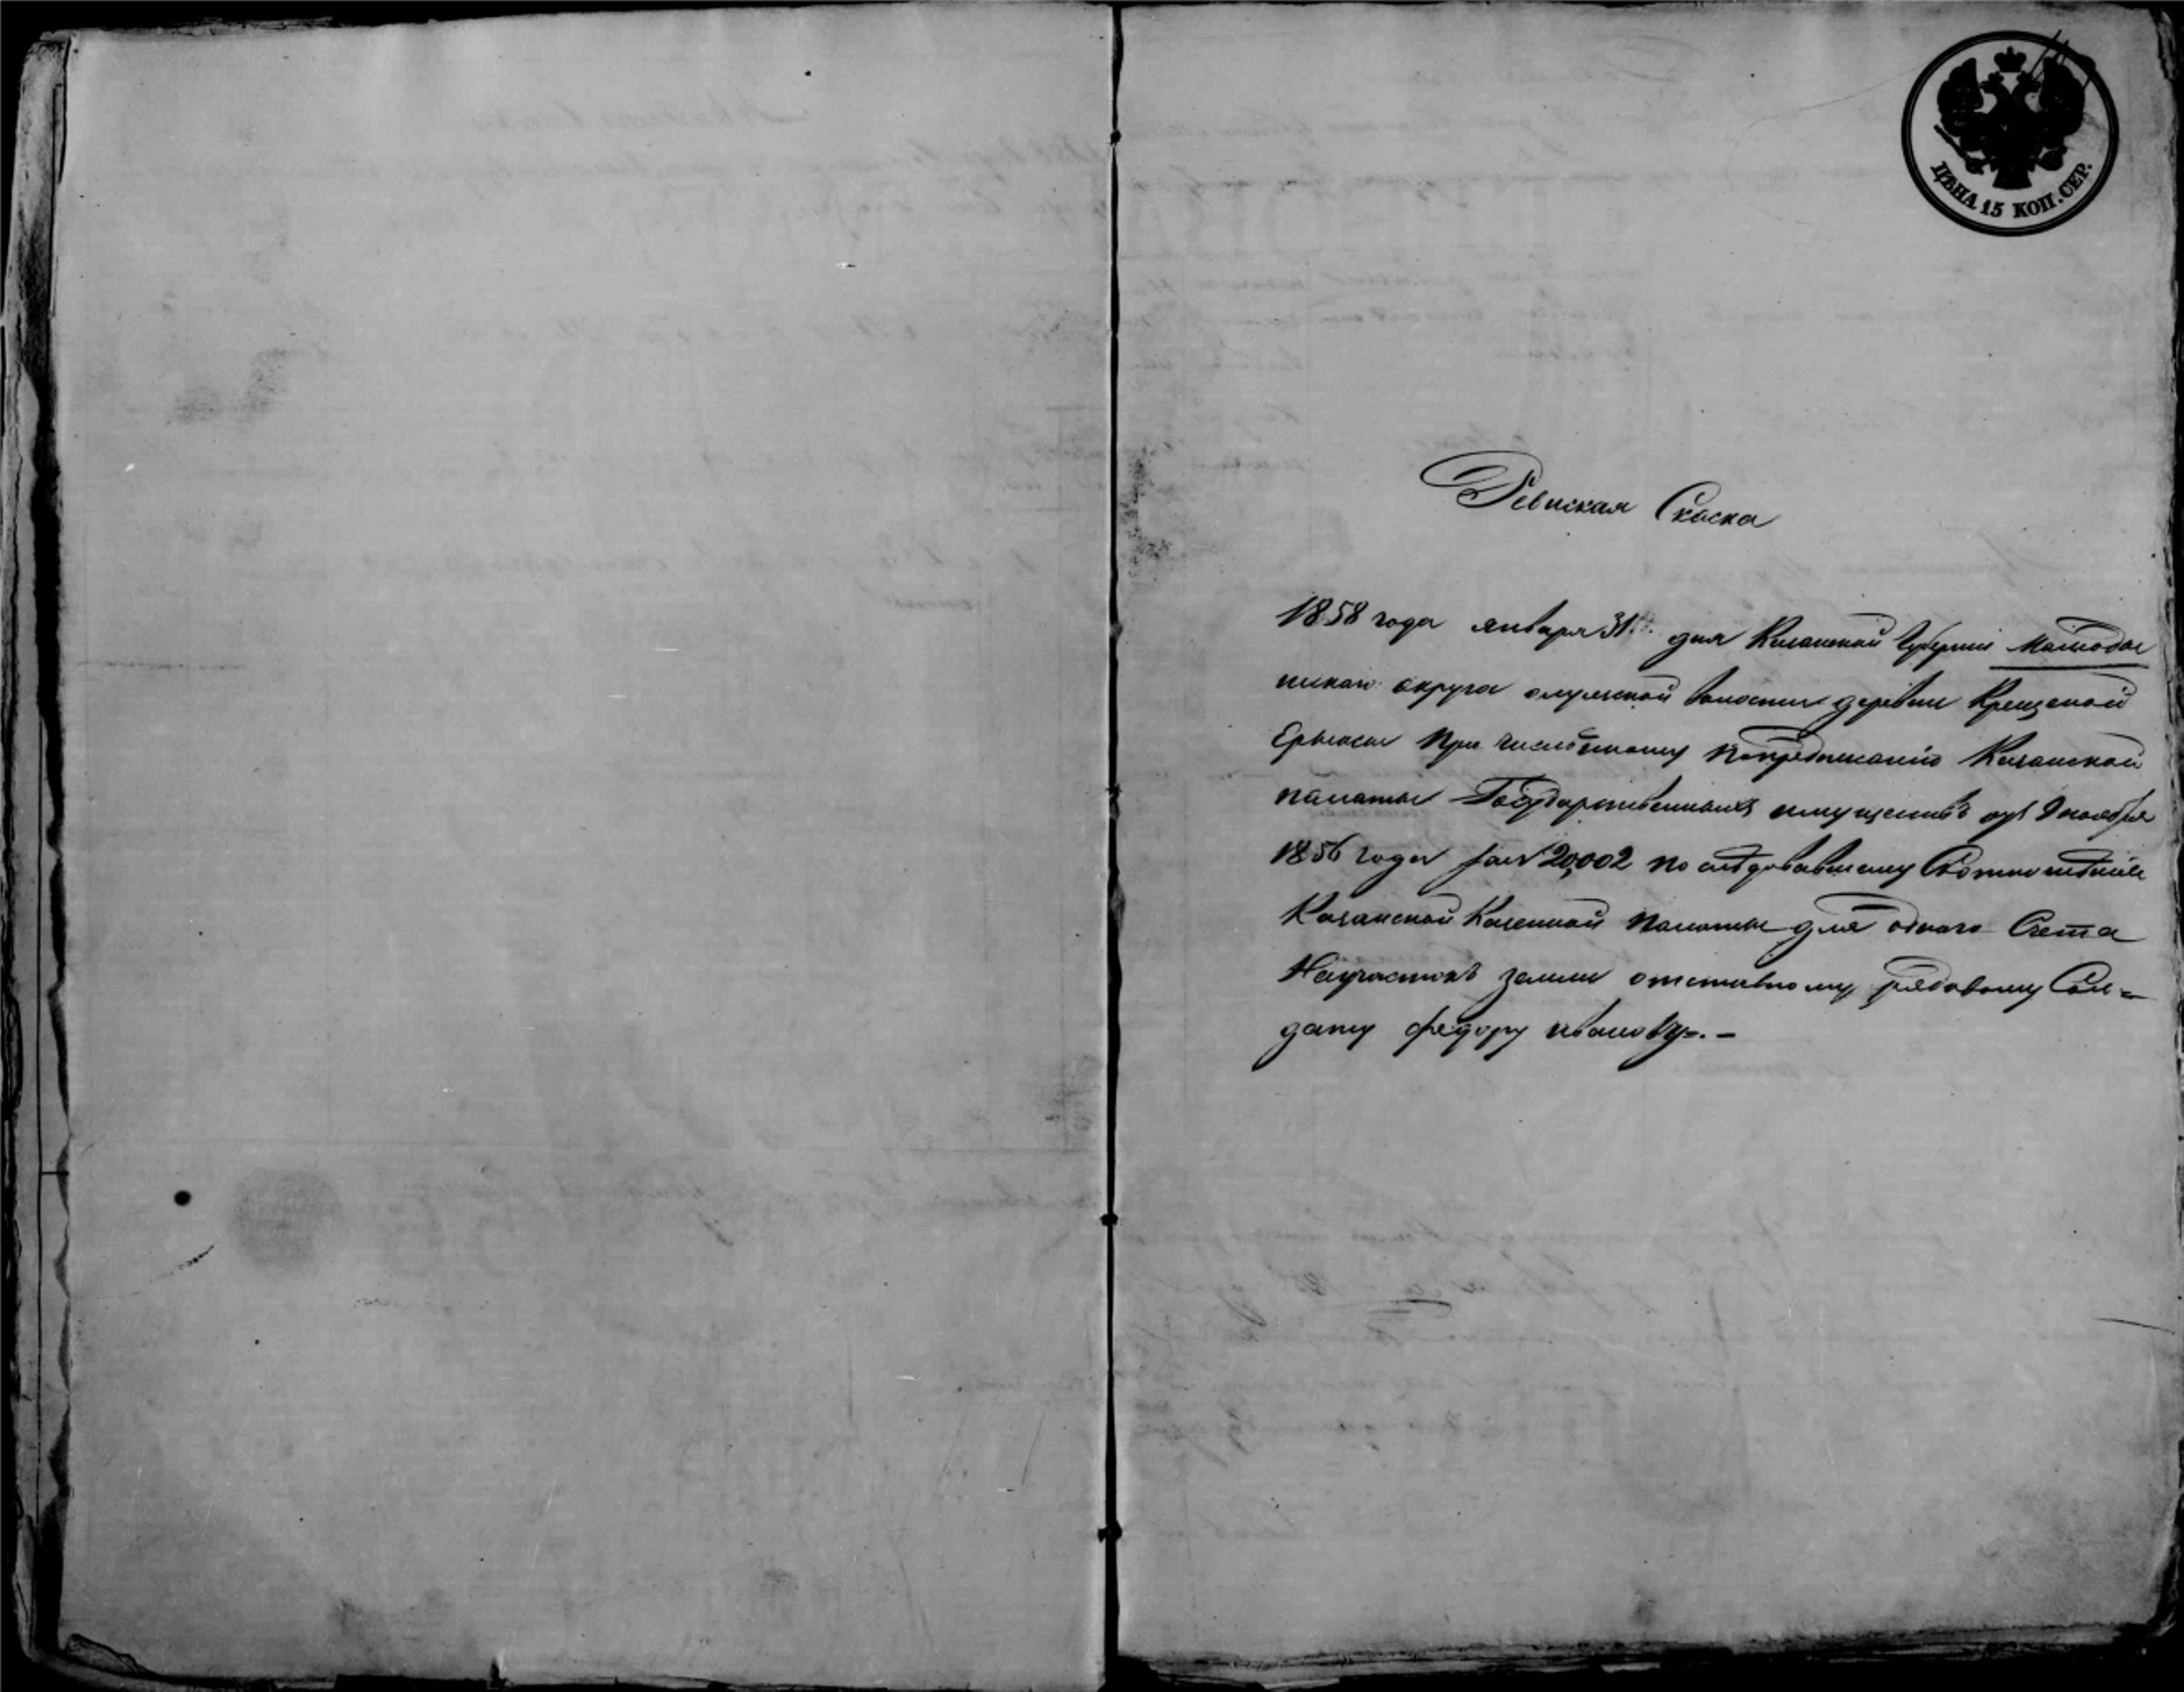 ЦѢНА 15 КОП. СЕР.
Ревиская Скаска
1858 года января 31. дня Казанской Губерніи Мамадыш
скаго округа волости деревни Крещеной
Ерыксы При численному попредписанію Казанской
палаты Государственныхъ имуществъ отъ 9 ноября
1856 года за № 20,002 по следовавшему
Казанской Казенной палаты для Счета
Научастокъ земли отставному рядовому Сол=
дату федору иванову=.–